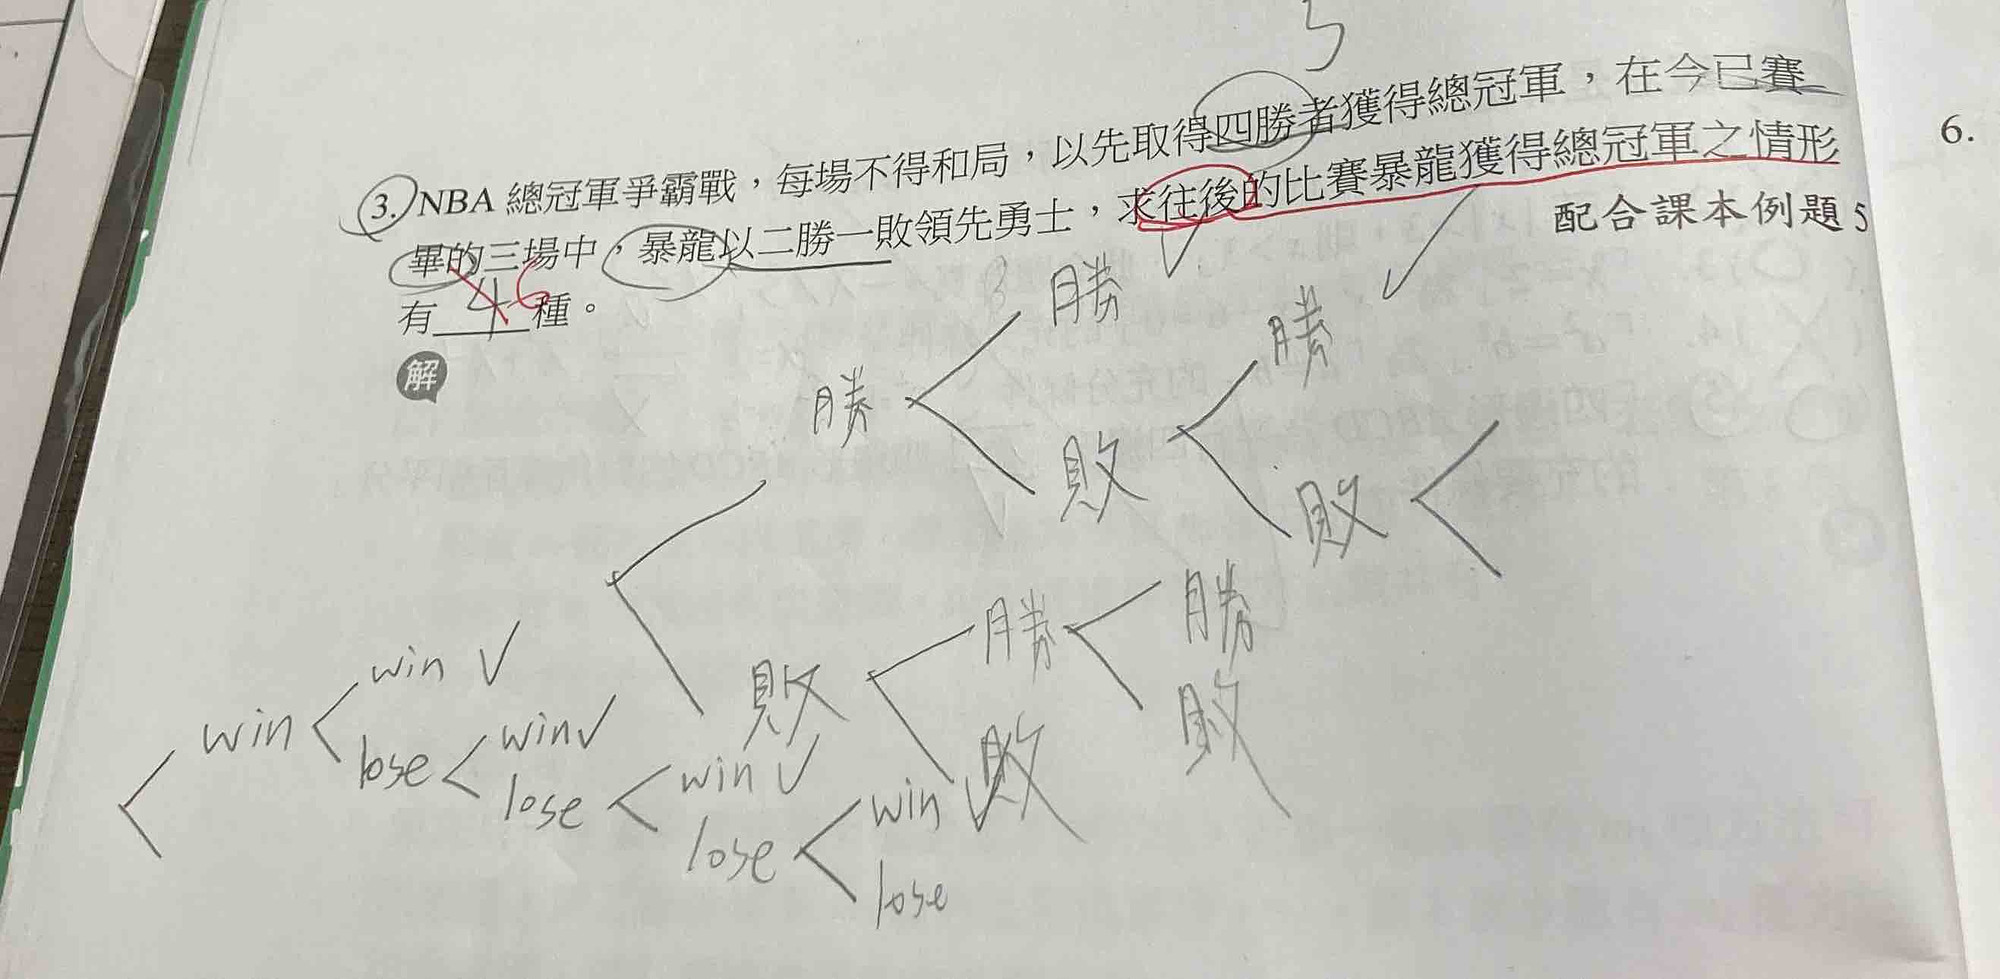 3. NBA 總冠軍爭霸戰，每場不得和局，以先取得四勝者獲得總冠軍，在今已賽
畢的三場中，暴龍以二勝一敗領先勇士，求往後的比賽暴龍獲得總冠軍之情形
有 4 6 種。
配合課本例題 5
6.
解
勝
勝
敗
勝
敗
敗
勝
敗
勝
敗
win
win
lose
win
lose
win
lose
win
lose